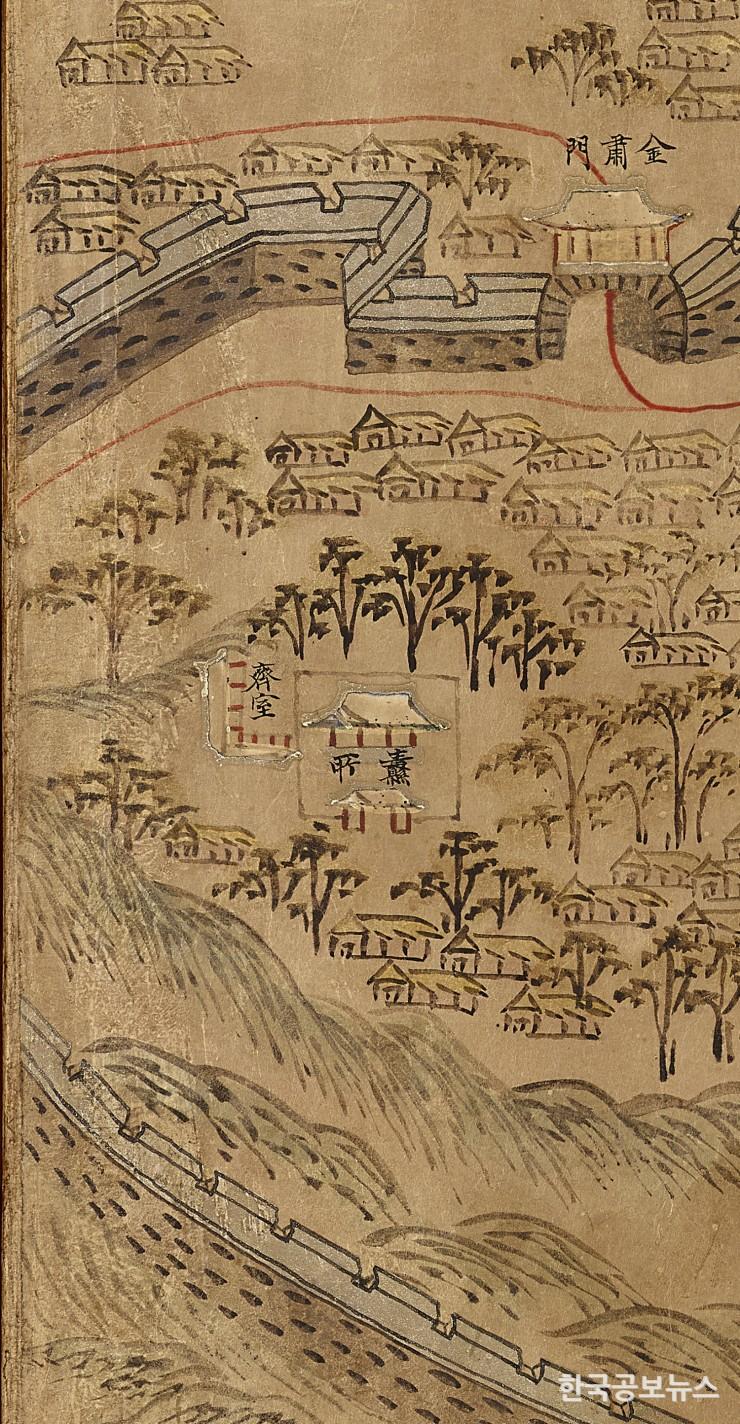 金肅門
齊室
纛所
한국공보뉴스